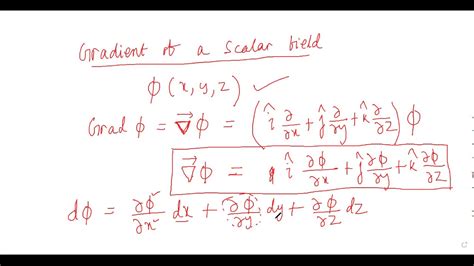 Gradient of a scalar field
ϕ(x,y,z) ✓
Grad ϕ = ∇⃗ϕ = (î ∂/∂x + ĵ ∂/∂y + k̂ ∂/∂z) ϕ
∇⃗ϕ = î ∂ϕ/∂x + ĵ ∂ϕ/∂y + k̂ ∂ϕ/∂z
dϕ = ∂ϕ/∂x dx + ∂ϕ/∂y dy + ∂ϕ/∂z dz